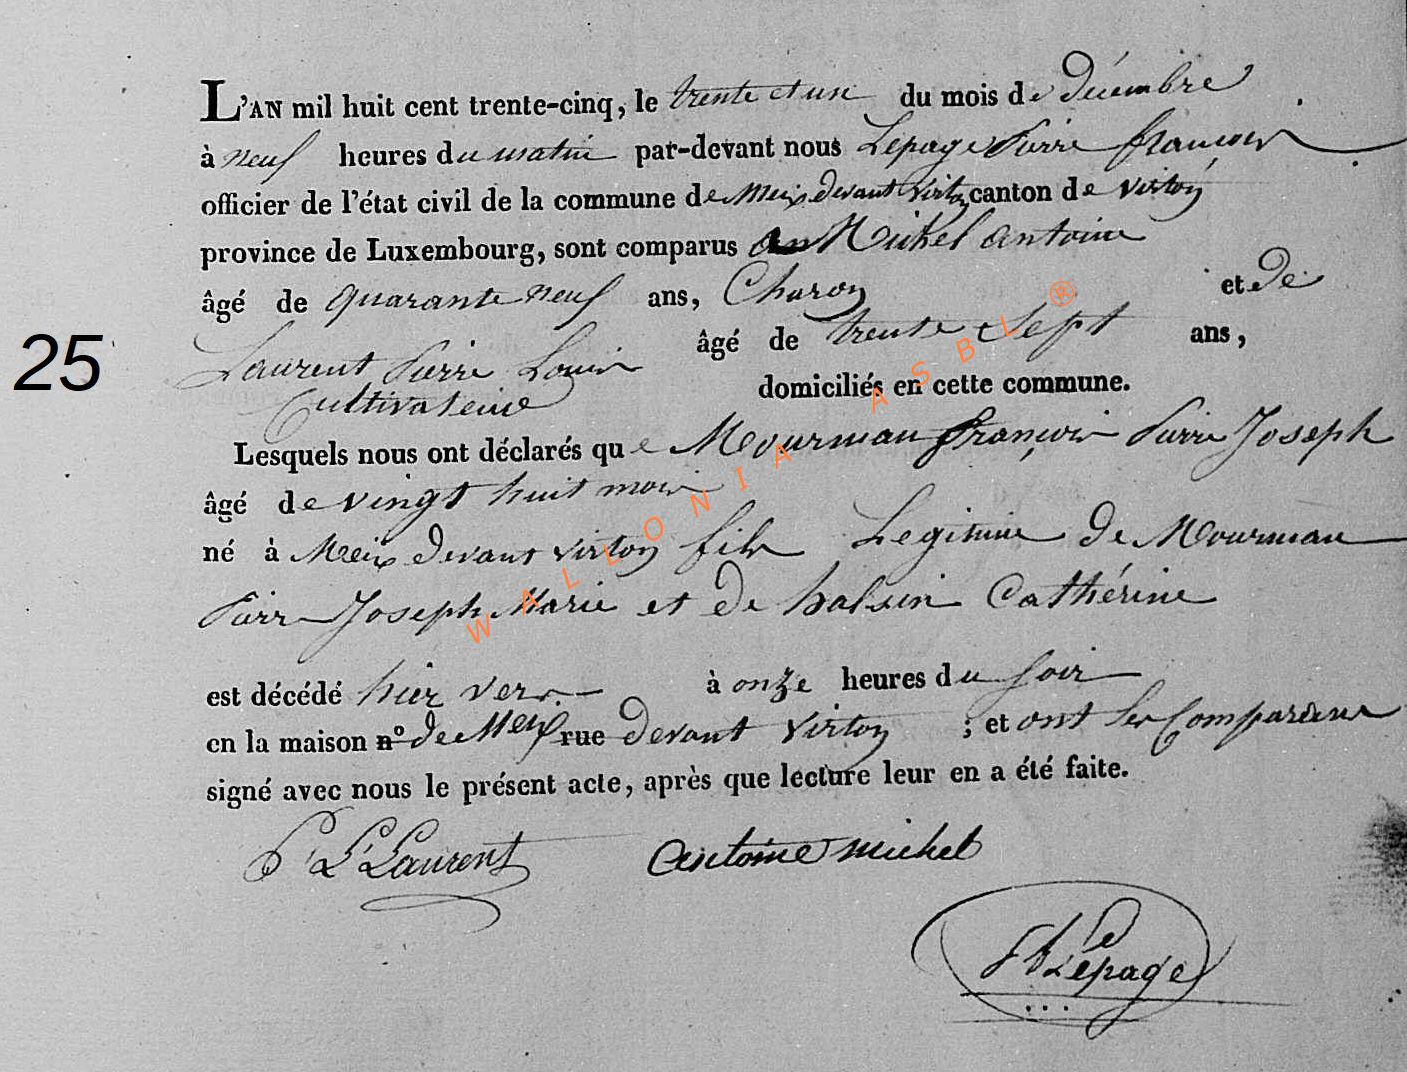 L'AN mil huit cent trente-cinq, le trente et un du mois de décembre
à neuf heures du matin par-devant nous Lepage Pierre françois
officier de l'état civil de la commune de Meix devant Virton canton de Virton
province de Luxembourg, sont comparus Michel antoine
âgé de quarante neuf ans, Charon et de
Laurent Pierre Louis âgé de trente Sept ans,
Cultivateurs domiciliés en cette commune.
Lesquels nous ont déclarés que Mourman françois Pierre Joseph
âgé de vingt huit mois
né à Meix devant Virton fils Legitime de Mourman
Pierre Joseph Marie et de halsin Cathérine
est décédé hier vers à onze heures du soir
en la maison nº de Meix rue devant Virton ; et ont les Comparans
signé avec nous le présent acte, après que lecture leur en a été faite.
P L Laurent antoine michel
Lepage
25
WALLONIA ASBL ®